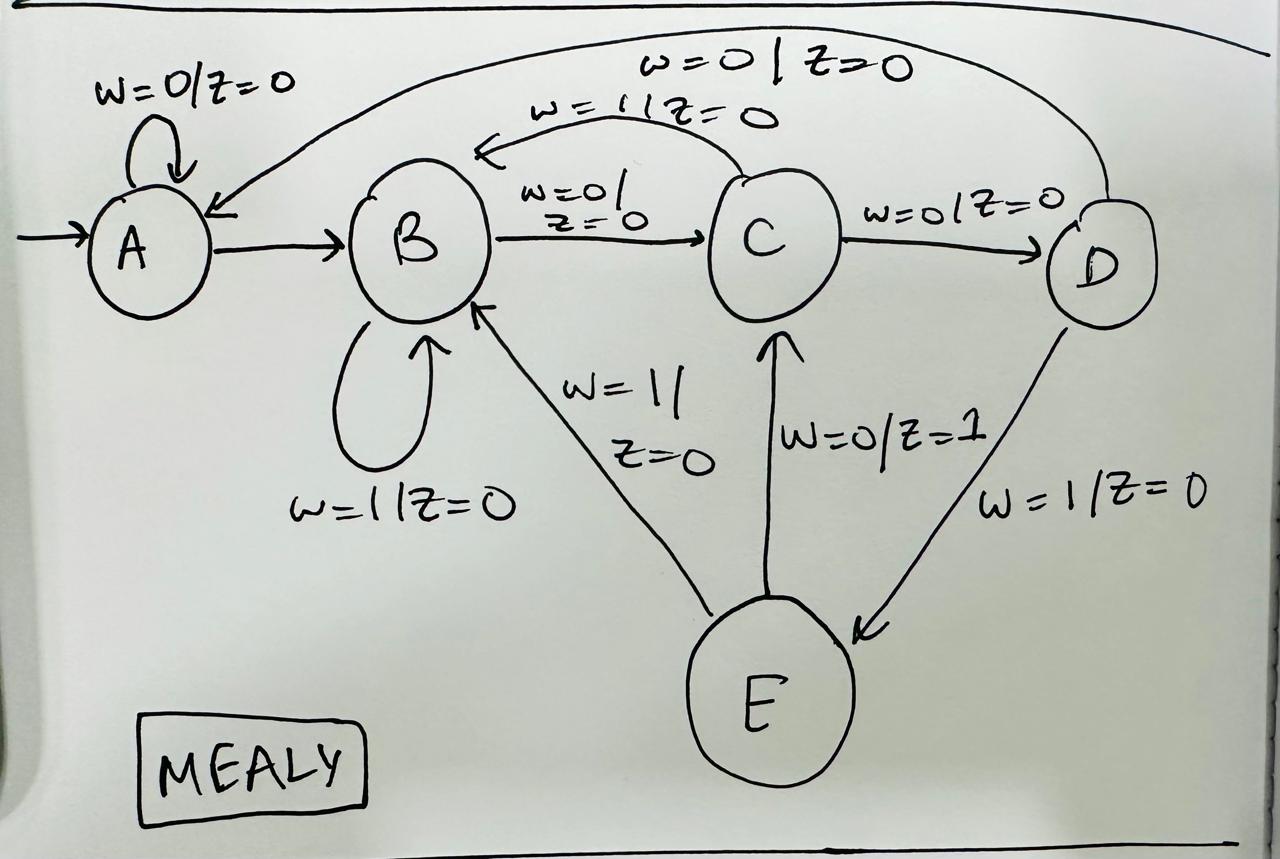 w=0/z=0
w=0/z=0
w=1/z=0
A
B
w=0/
z=0
C
w=0/z=0
D
w=1/
z=0
w=0/z=1
w=1/z=0
w=1/z=0
E
MEALY